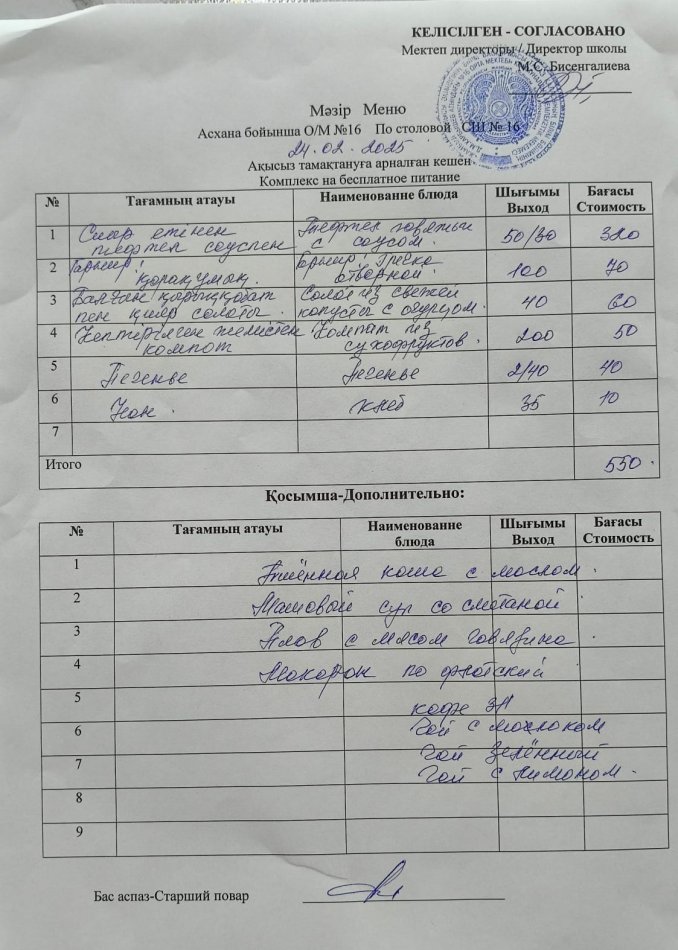 КЕЛІСІЛГЕН - СОГЛАСОВАНО
Мектеп директоры / Директор школы
М.С. Бисенгалиева
Мәзір Меню
Асхана бойынша О/М №16 По столовой СШ № 16
24.02.2025
Ақысыз тамақтануға арналған кешен
Комплекс на бесплатное питание
№ Тағамның атауы Наименованне блюда Шығымы Выход Бағасы Стоимость
1 Сиыр етінен тефтел соуспен Тефтел говяжьи с соусом. 50/30 320
2 Гарнир: қарақұмық. Гарнир: Греча отварной. 100 70
3 Балғын қырыққабат пен қияр салаты. Салат из свежей капусты с огурцом. 40 60
4 Кептірілген жемістен компот Компот из сухофруктов. 200 50
5 Печенье Печенье 2/40 40
6 Нан. хлеб 35 10
7
Итого 550.
Қосымша-Дополнительно:
№ Тағамның атауы Наименованне блюда Шығымы Выход Бағасы Стоимость
1 Пшённая каша с маслом.
2 Машовый суп со сметаной
3 Плов с мясом говядина.
4 Макарон по флотский
5 кофе 3в1
6 Чай с молоком
7 Чай зелённый
Чай с лимоном.
8
9
Бас аспаз-Старший повар